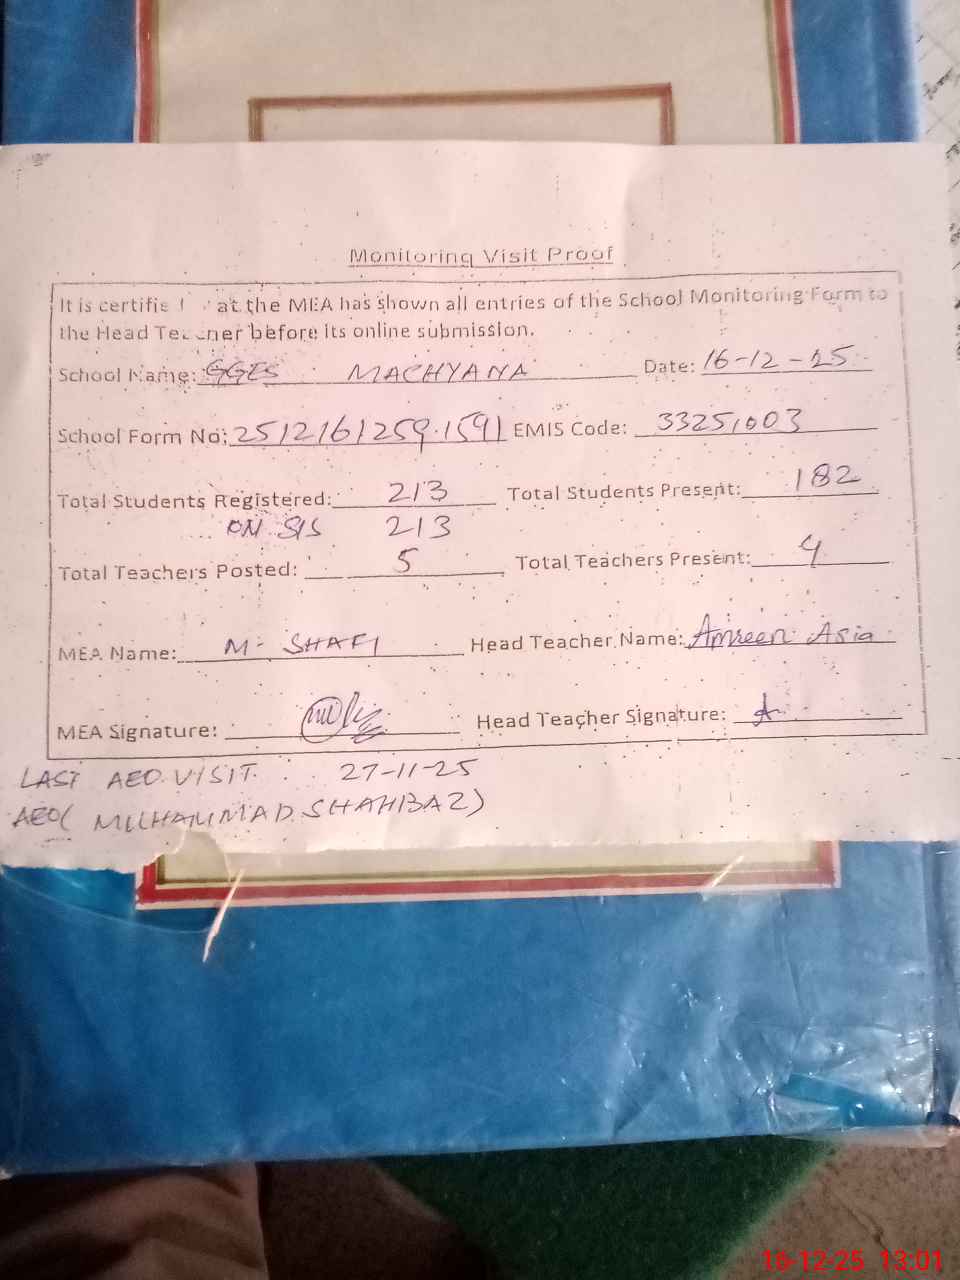 Monitoring Visit Proof
It is certifie at the MEA has shown all entries of the School Monitoring Form to
the Head Teacher before its online submission.
School Name: GGES MACHYANA Date: 16-12-25
School Form No: 2512161259.1591 EMIS Code: 33251003
Total Students Registered: 213 Total Students Present: 182
ON SIS 213
Total Teachers Posted: 5 Total Teachers Present: 4
MEA Name: M- SHAFI Head Teacher Name: Amreen Asia
MEA Signature: Head Teacher Signature:
LAST AEO VISIT. 27-11-25
AEO( MUHAMMAD SHAHBAZ)
16-12-25 13:01